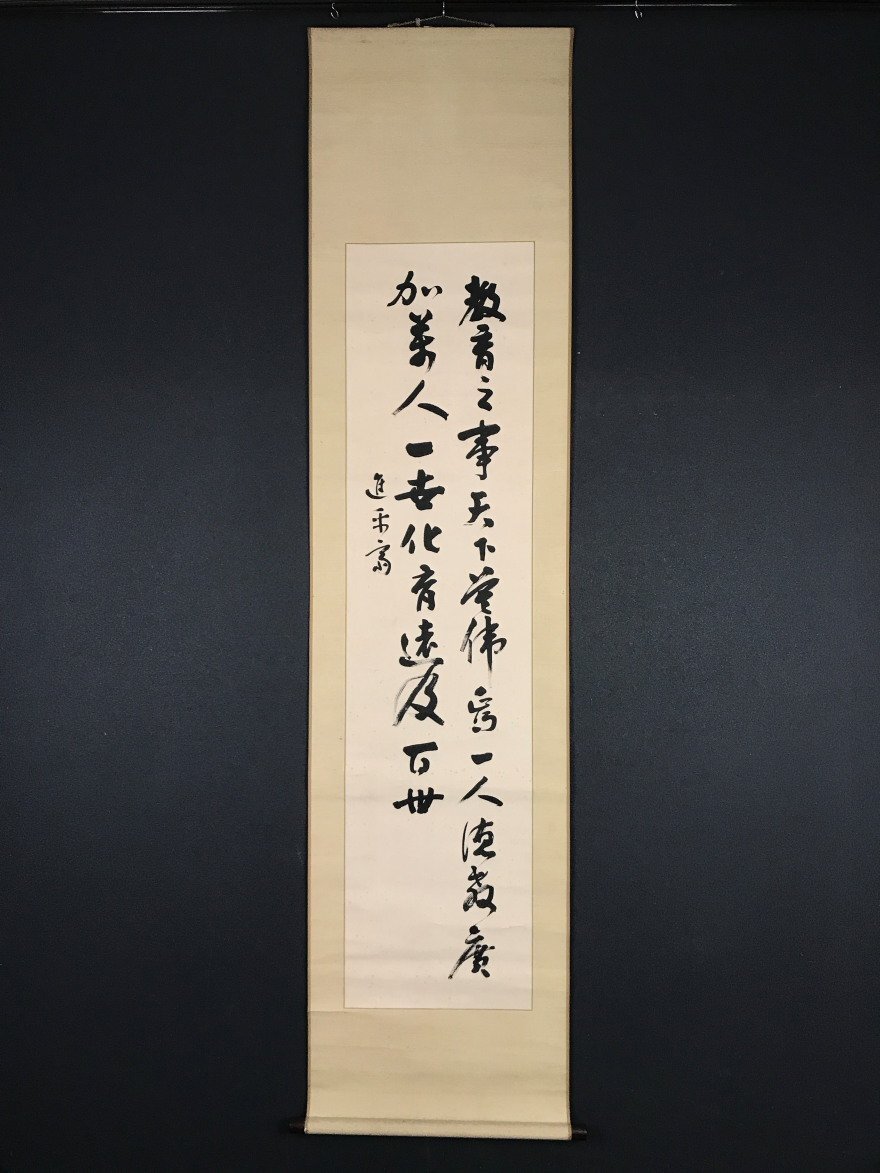 教育之事天下莫偉焉一人徳教廣
加萬人一世化育遠及百世
進乎齋